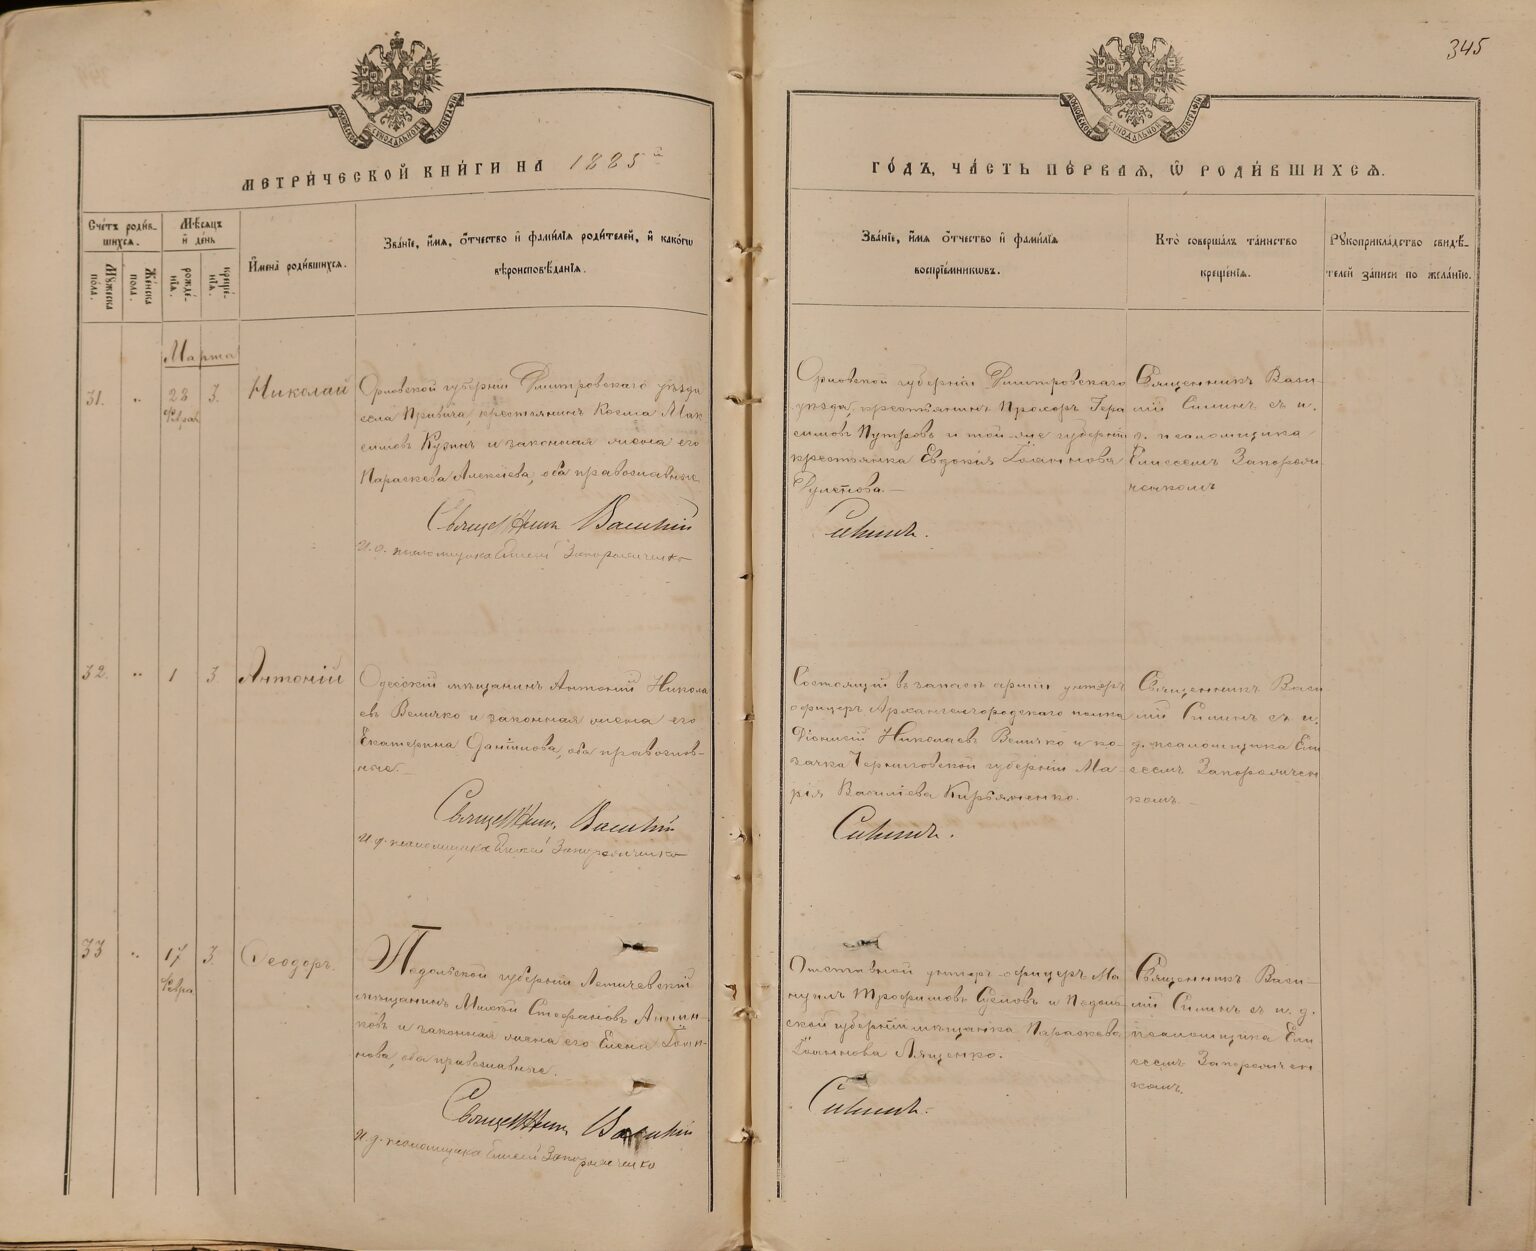 345
МОСКОВСКОЙ СѴНОДАЛЬНОЙ ТИПОГРАФІИ
МОСКОВСКОЙ СѴНОДАЛЬНОЙ ТИПОГРАФІИ
МЕТРИ́ЧЕСКОЙ КНИ́ГИ НА 1885й
ГО́ДЪ, ЧА́СТЬ ПЕ́РВАѦ, Ѡ҆ РОДИ́ВШИХСѦ.
Сче́тъ роди́в-
шихсѧ.
Мꙋ́жеска по́ла.
Же́нска по́ла.
Мѣ́сѧцъ и҆ де́нь
рожде́-нїѧ.
креще́-нїѧ.
И҆мена̀ роди́вшихсѧ.
Зва́нїе, и҆́мѧ, ѻ҆́тчество и҆ фами́лїѧ роди́телей, и҆ како́гѡ
вѣроисповѣ́данїѧ.
Зва́нїе, и҆́мѧ ѻ҆́тчество и҆ фами́лїѧ
воспрїе́мникѡвъ.
Кто̀ соверша́лъ та́инство
креще́нїѧ.
Рꙋкоприкла́дство свидѣ́-
телей за́писи по жела́нїю.
Марта
31. „ 28 Февраля 3. Николай
Орловской губерніи Дмитровскаго уѣзда
села Привича, крестьянинъ Косма Мак
симовъ Кузинъ и законная жена его
Параскева Алексѣева, оба православные
Священникъ Василій
И. д. псаломщика Елисей Запорожченко
Орловской губерніи Дмитровскаго
уѣзда, крестьянинъ Прохоръ Гера
симовъ и той-же губерніи
крестьянка Евдокія Іоаннова
Священникъ Васи-
лій Силинъ съ и.
д. псаломщика
Елисеемъ Запорож-
ченкомъ
Силинъ.
32. „ 1 3 Антоній
Одесскій мѣщанинъ Антоній Никола
евъ Величко и законная жена его
Екатерина Даніилова, оба православ-
ные.
Священникъ Василій
И. д. псаломщика Елисей Запорожченко
Состоящій въ запасѣ арміи унтеръ
офицеръ Архангелгородскаго полка
Діонисій Николаевъ Величко и ка-
зачка Черниговской губерніи Ма-
рія Василіева Кирьяненко.
Священникъ Васи
лій Силинъ съ и.
д. псаломщика Ели
сеемъ Запорожчен
комъ.
Силинъ.
33 „ 17 Февра 3. Ѳеодоръ.
Подольской губерніи Летичевскій
мѣщанинъ Стефановъ
и законная жена его Елена Іоан-
нова, оба православные.
Священникъ Василій
И. д. псаломщика Елисей Запорожченко
Отставной унтеръ-офицеръ Ма-
нуилъ Трофимовъ и Подоль-
ской губерніи мѣщанка Параскева
Іоаннова Лященко.
Священникъ Васи-
лій Силинъ съ и. д.
псаломщика Ели
сеемъ Запорожчен
комъ.
Силинъ.